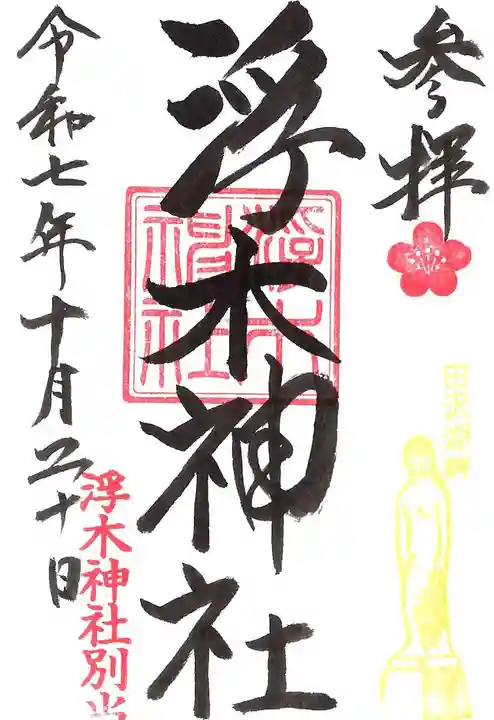 参拝
田沢湖畔
浮木神社
浮木神社
令和七年十月二十日
浮木神社別当